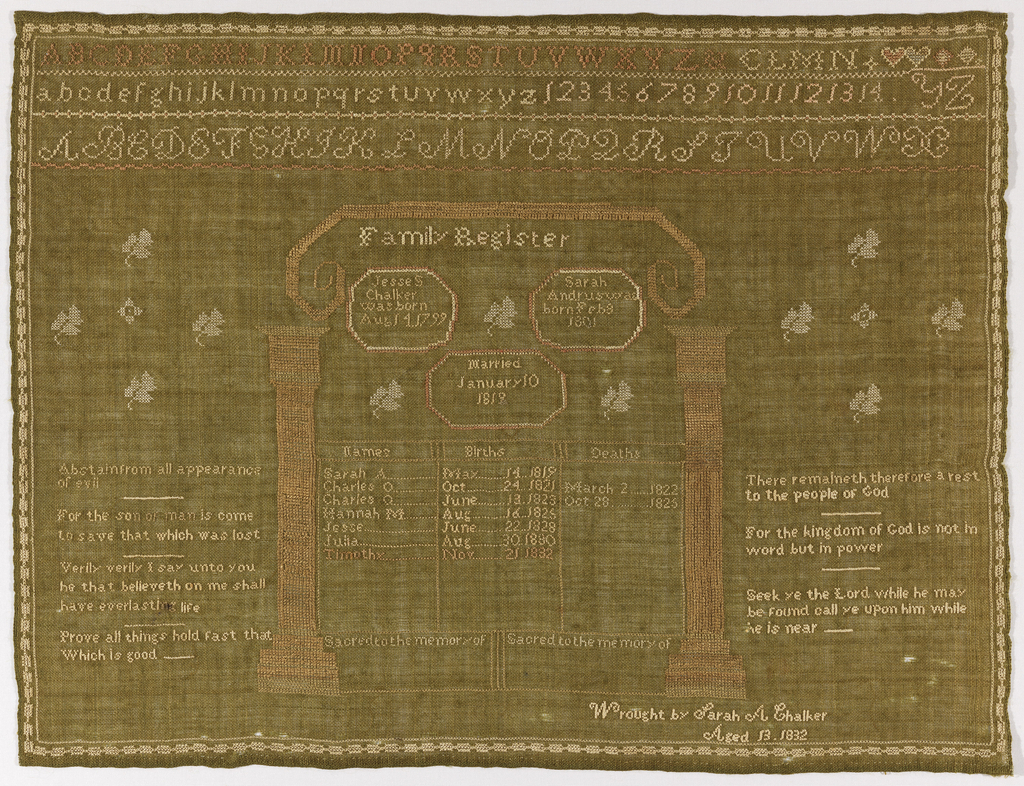 ABCDEFGHIJKLMNOPQRSTUVWXYZ& CLMN
abcdefghijklmnopqrstuvwxyz1234567891011121314 YZ
ABCDEFGHIJKLMNOPQRSTUVWX
Family Register
Jesse S
Chalker
was born
Aug 14 1799
Sarah
Andrus was
born Feb 9
1801
Married
January 10
1819
Names Births Deaths
Sarah A May 14 1819
Charles O Oct 24 1821 March 2 1822
Charles O June 13 1823 Oct 28 1823
Hannah M Aug 16 1825
Jesse June 22 1828
Julia Aug 30 1830
Timothy Nov 21 1832
Sacred to the memory of Sacred to the memory of
Abstain from all appearance
of evil
For the son of man is come
to save that which was lost
Verily verily I say unto you
he that believeth on me shall
have everlasting life
Prove all things hold fast that
Which is good
There remaineth therefore a rest
to the people of God
For the kingdom of God is not in
word but in power
Seek ye the Lord while he may
be found call ye upon him while
he is near
Wrought by Sarah A Chalker
Aged 13. 1832